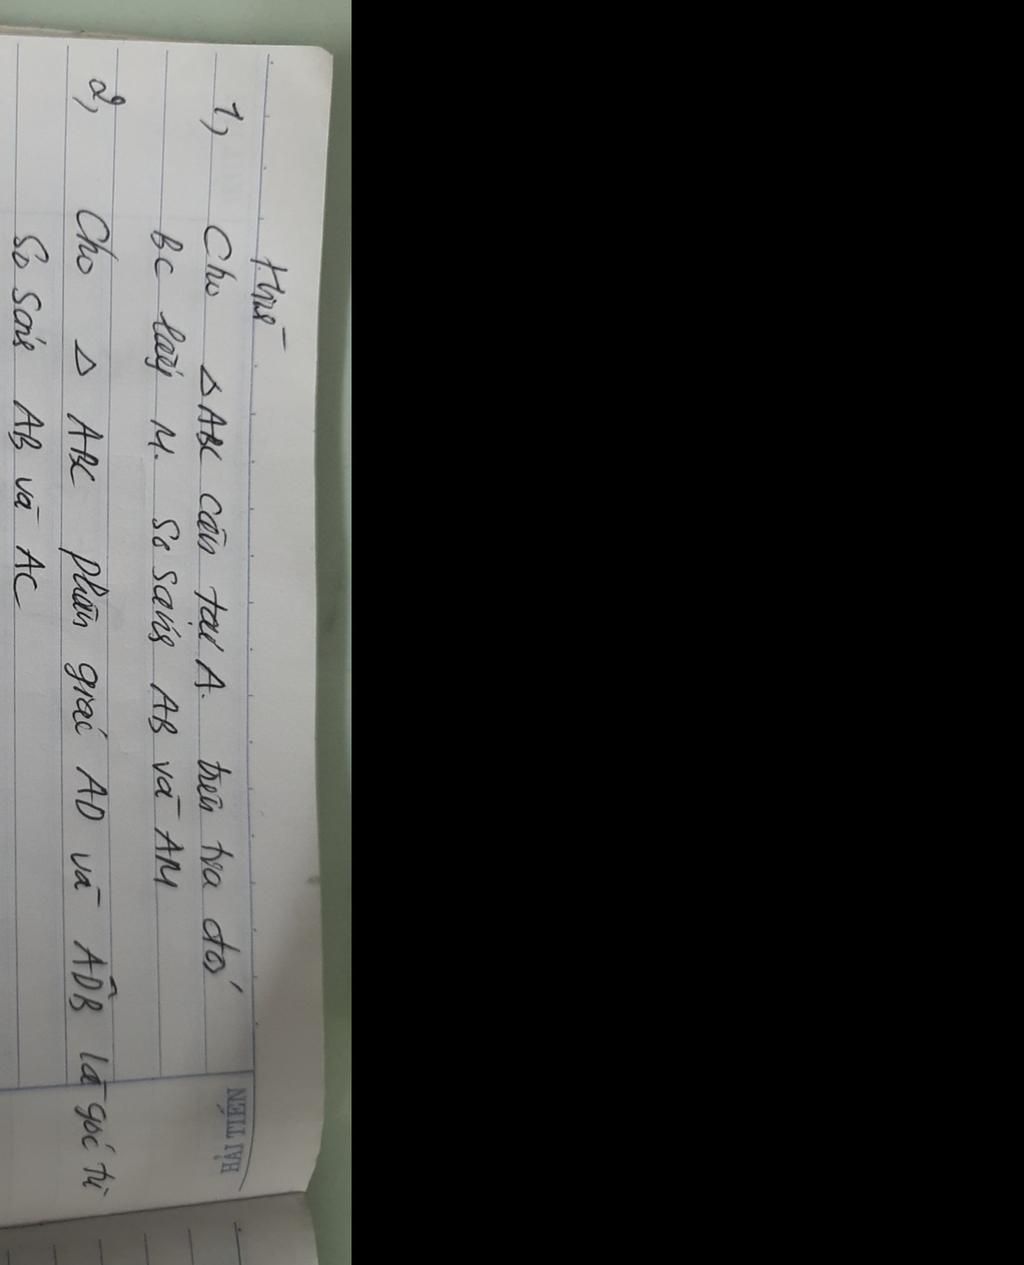 1, Cho △ABC cân tại A. trên tia đối
BC lấy M. So sánh AB và AM
2, Cho △ ABC phân giác AD và ADB là góc tù
So sánh AB và AC
HẢI TIẾN